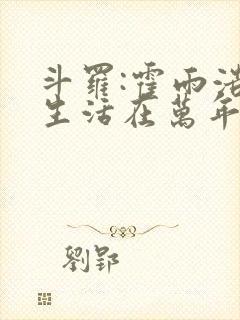 斗羅:霍雨浩
生活在萬年
劉郢